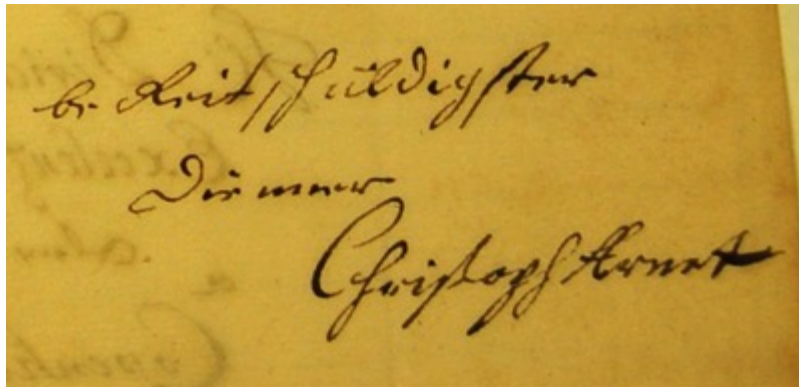 be Reitschüldigster
Dienner
Christoph Arnet